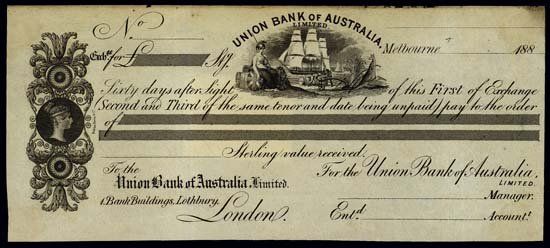 No
UNION BANK OF AUSTRALIA,
LIMITED
Melbourne 188
for £ Stg.
Sixty days after sight of this First of Exchange
Second and Third of the same tenor and date being unpaid) pay to the order
of
Sterling value received.
To the For the Union Bank of Australia,
Union Bank of Australia, Limited. LIMITED.
1, Bank Buildings, Lothbury, Manager.
London. Entd. Accountt.